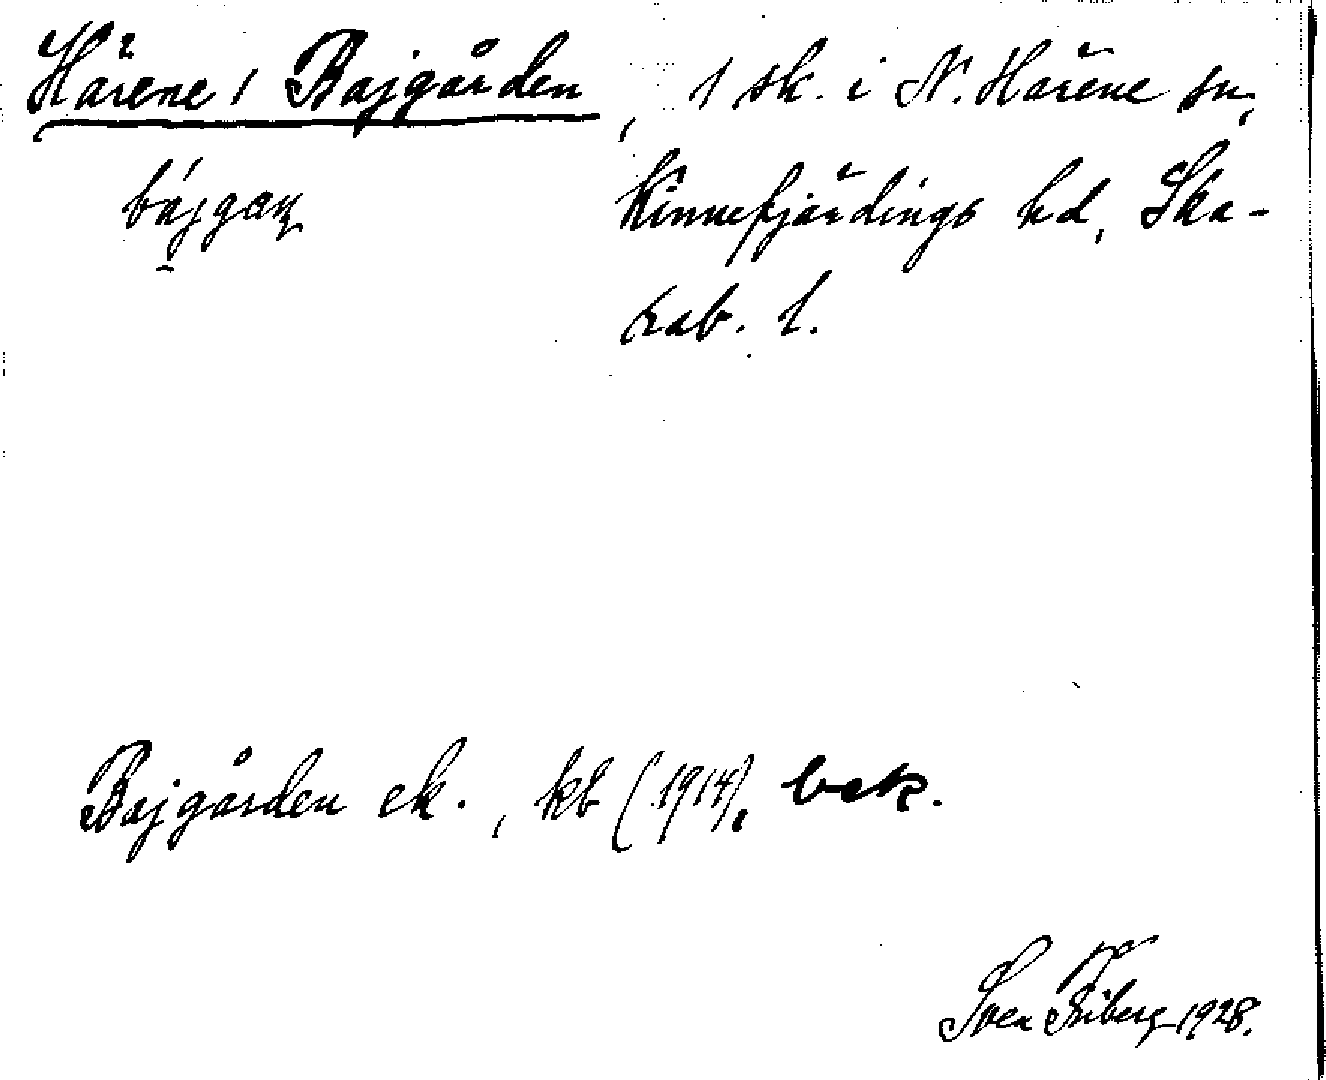 Härene, Bajgården, 1 sk. i N. Härene sn,
bájgaɳ Kinnefjärdings hd, Ska-
rab. l.
Bajgården ek., kb (1914), bek.
Sven Friberg 1928.